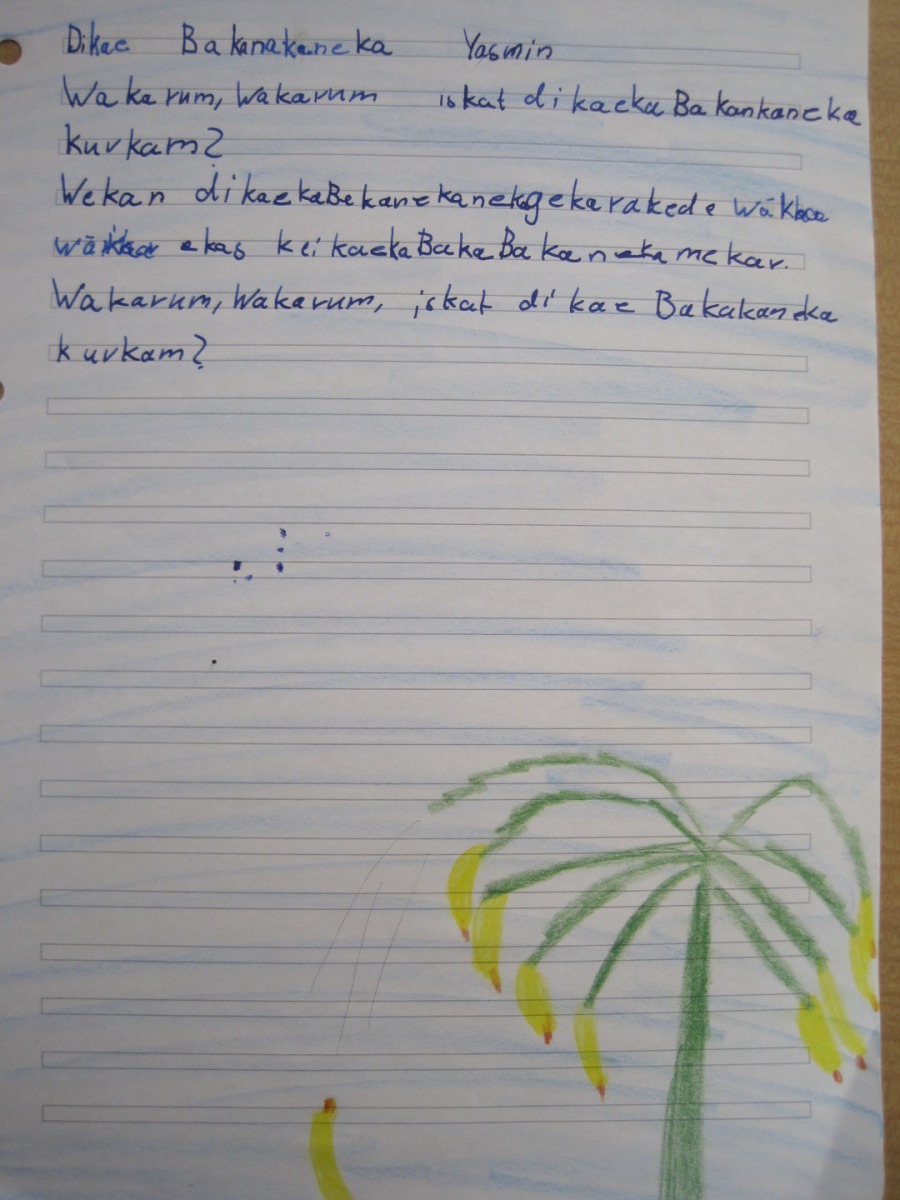 Dikae Bakanakaneka Yasmin
Wakarum, Wakarum iskat dikaeka Bakankaneka
kurkam?
Wekan dikaekaBekanekanekagekarakede wäkkar
ekas keikaekaBakaBakanekamekar.
Wakarum, Wakarum, iskat dikae Bakakaneka
kurkam?